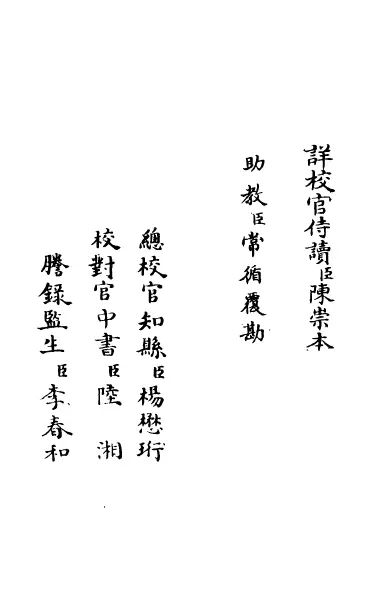 詳校官侍讀臣陳崇本
助教臣常循覆勘
總校官知縣臣楊懋珩
校對官中書臣陸湘
謄錄監生臣李春和